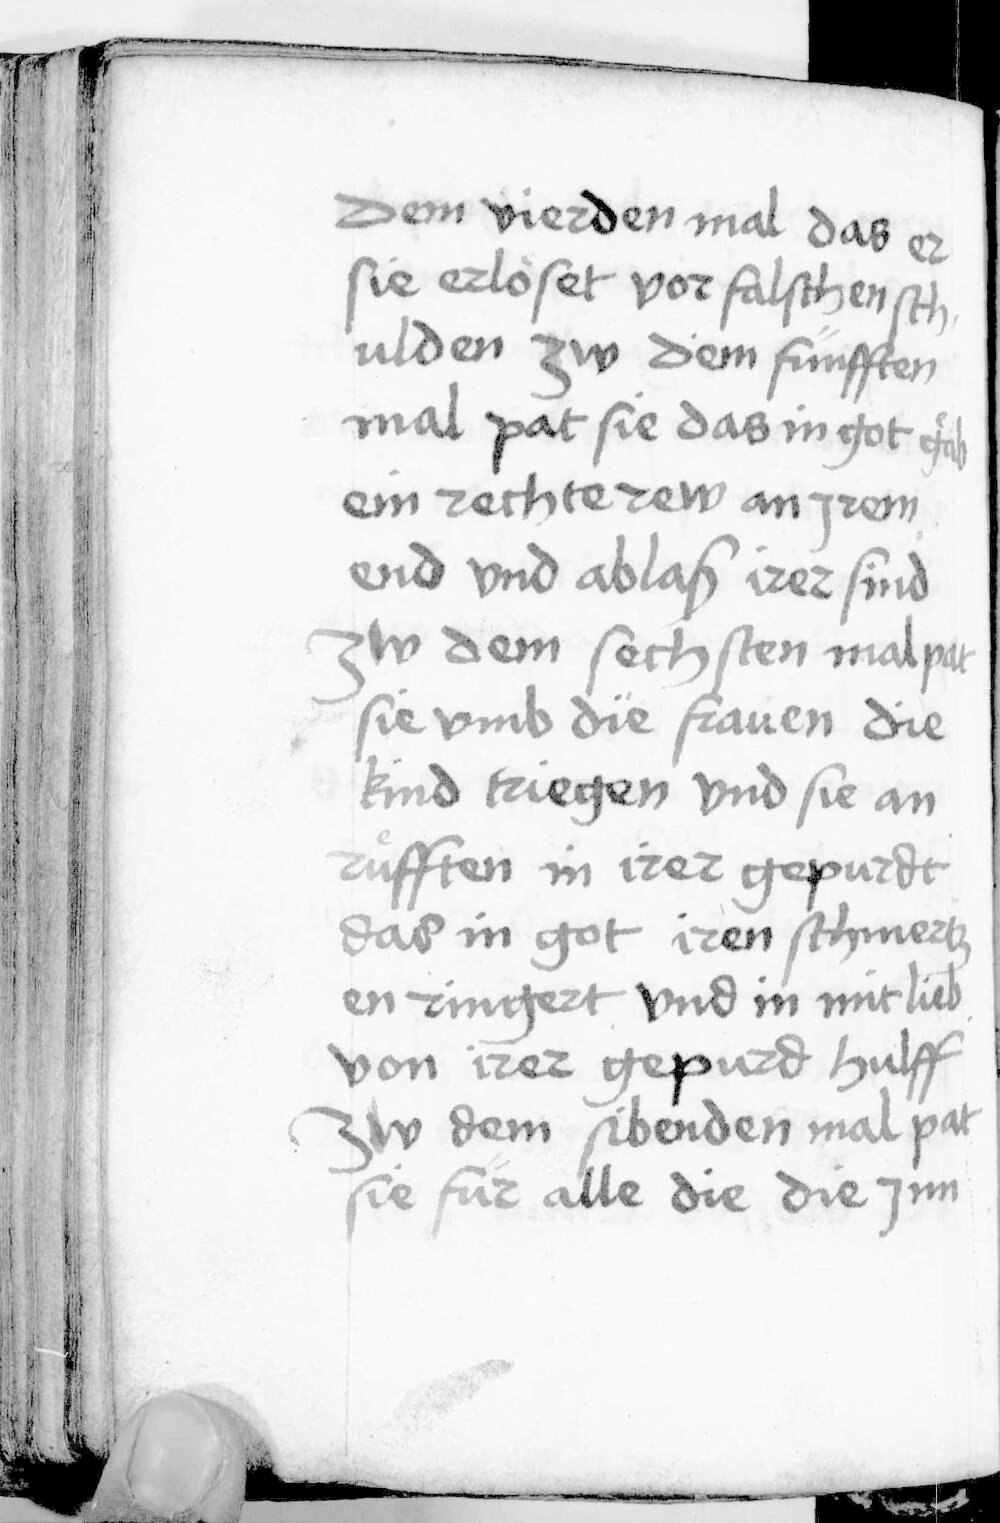 Dem vierden mal das er
sie erlöset vor falschen sch
ulden Zw dem fünfften
mal pat sie das in got gäb
ein rechte rew an jrem
end vnd ablaß irer sind
Zw dem sechsten mal pat
sie vmb die frauen die
kind triegen vnd sie an
ruͤfften in irer gepurdt
das in got iren schmertz
en ringert vnd in mit lieb
von irer gepurd hulff
Zw dem sibenden mal pat
sie für alle die die jnn